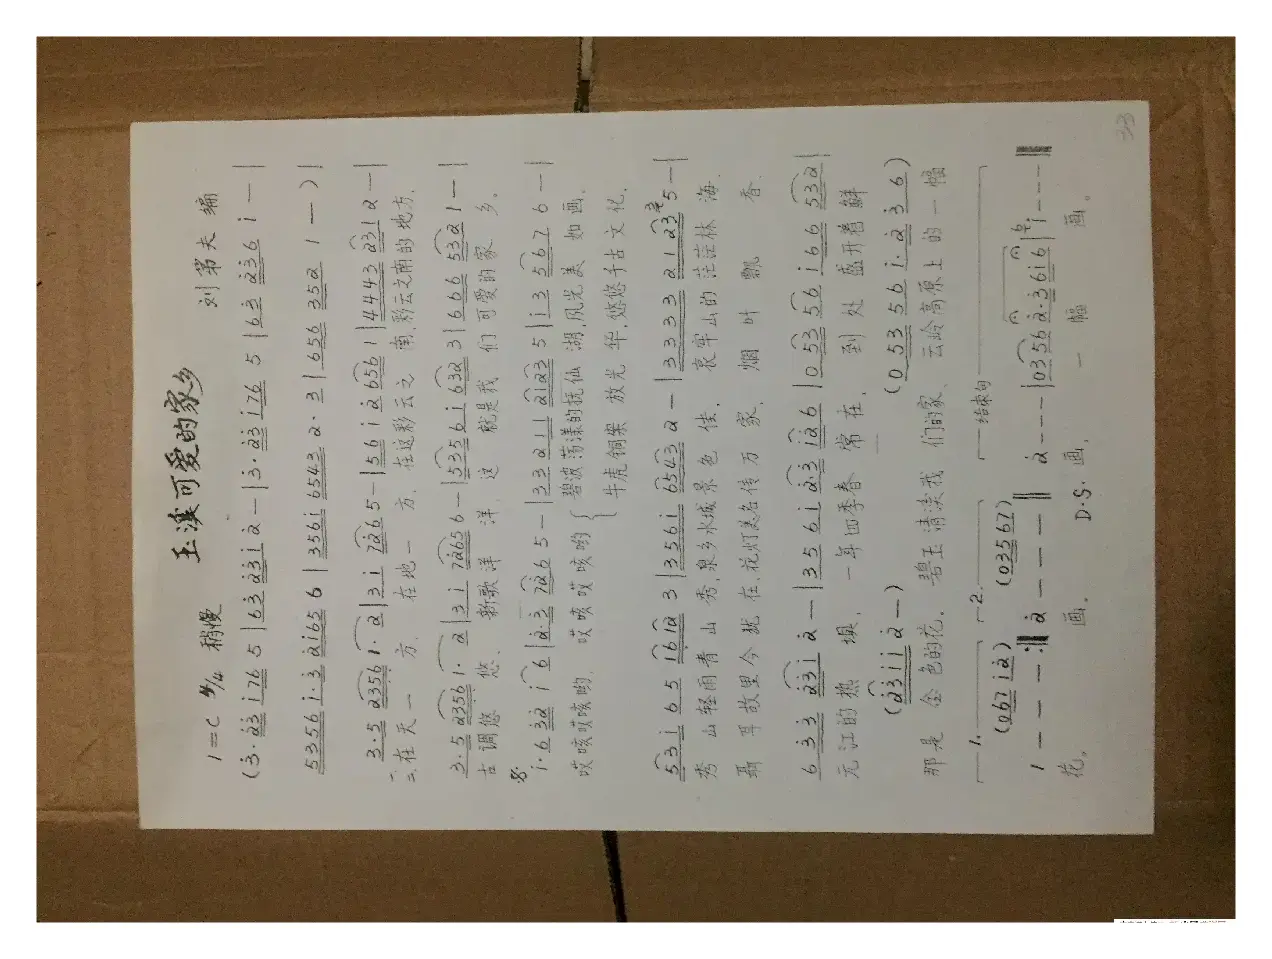 玉溪可爱的家乡
1=C 4/4 稍慢 刘第夫 编
(3·2̇3̇ i̇765|63 2̇3̇i̇2̇—|3·2̇3̇ i̇765|63 2̇361̇—|
5356i̇·3̇ 2̇i̇656|356i̇ 65432·3|1656 3521—)|
3·5 23561·2|3i̇ 72̇65—|56i̇2̇ 6561|4443 2312—|
一、在天一方、在地一方、在这彩云之南,彩云之南的地方.
二、
3·5 23561·2|3i̇ 72̇656—|5356i̇ 6323|1666 5321—|
古调悠悠、新歌洋洋、这就是我们可爱的家乡.
i̇·6 32 i̇6|2̇·3̇ 72̇65—|3321 12̇i̇2̇35|i̇3 5676—|
哎咳哎咳哟、哎咳哎咳哟 碧波荡漾的抚仙湖,风光美如画.
牛虎铜案放光华,悠悠千古文化.
53i̇65 1612 3|356i̇ 65432—|3333 21235—|
秀山轻雨青山秀,泉乡水城景色佳, 哀牢山的茫茫林海.
聂耳故里今犹在、花灯美名传万家. 烟叶飘香.
6·3̇3̇ 2̇3̇i̇2̇—|356i̇ 2̇·3̇ i̇2̇6|053 56 i̇66 532|
元江的热坝, 一年四季春常在, 到处盛开着鲜
(2̇3̇i̇i̇2̇—) (053556i̇·2̇36)
那是金色的花. 碧玉清溪我们的家. 云岭高原上的一幅
1. 2. 结束句
(067i̇2̇) (03567)
1———:‖2̇———‖2̇———|0356 2̇·3̇6i̇6|i̇———‖
花, 画. D.S. 画. 一幅画.
33